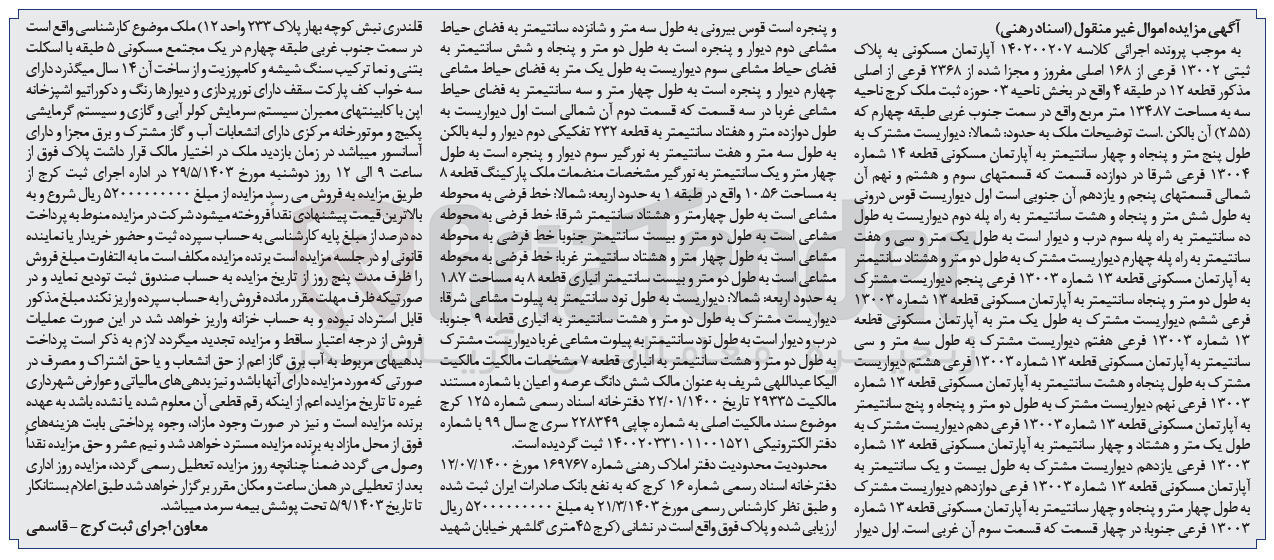 آگهی مزایده اموال غیر منقول (اسناد رهنی)
به موجب پرونده اجرائی کلاسه ۱۴۰۲۰۰۲۰۷ آپارتمان مسکونی به پلاک
ثبتی ۱۳۰۰۲ فرعی از ۱۶۸ اصلی مفروز و مجزا شده از ۲۳۶۸ فرعی از اصلی
مذکور قطعه ۱۲ در طبقه ۴ واقع در بخش ناحیه ۰۳ حوزه ثبت ملک کرج ناحیه
سه به مساحت ۱۳۴.۸۷ متر مربع واقع در سمت جنوب غربی طبقه چهارم که
(۲.۵۵) آن بالکن .است توضیحات ملک به حدود: شمالا: دیواریست مشترک به
طول پنج متر و پنجاه و چهار سانتیمتر به آپارتمان مسکونی قطعه ۱۴ شماره
۱۳۰۰۴ فرعی شرقا در دوازده قسمت که قسمتهای سوم و هشتم و نهم آن
شمالی قسمتهای پنجم و یازدهم آن جنوبی است اول دیواریست قوس درونی
به طول شش متر و پنجاه و هشت سانتیمتر به راه پله دوم دیواریست به طول
ده سانتیمتر به راه پله سوم درب و دیوار است به طول یک متر و سی و هفت
سانتیمتر به راه پله چهارم دیواریست مشترک به طول دو متر و هشتاد سانتیمتر
به آپارتمان مسکونی قطعه ۱۳ شماره ۱۳۰۰۳ فرعی پنجم دیواریست مشترک
به طول دو متر و پنجاه سانتیمتر به آپارتمان مسکونی قطعه ۱۳ شماره ۱۳۰۰۳
فرعی ششم دیواریست مشترک به طول یک متر به آپارتمان مسکونی قطعه
۱۳ شماره ۱۳۰۰۳ فرعی هفتم دیواریست مشترک به طول سه متر و سی
سانتیمتر به آپارتمان مسکونی قطعه ۱۳ شماره ۱۳۰۰۳ فرعی هشتم دیواریست
مشترک به طول پنجاه و هشت سانتیمتر به آپارتمان مسکونی قطعه ۱۳ شماره
۱۳۰۰۳ فرعی نهم دیواریست مشترک به طول دو متر و پنجاه و پنج سانتیمتر
به آپارتمان مسکونی قطعه ۱۳ شماره ۱۳۰۰۳ فرعی دهم دیواریست مشترک به
طول یک متر و هشتاد و چهار سانتیمتر به آپارتمان مسکونی قطعه ۱۳ شماره
۱۳۰۰۳ فرعی یازدهم دیواریست مشترک به طول بیست و یک سانتیمتر به
آپارتمان مسکونی قطعه ۱۳ شماره ۱۳۰۰۳ فرعی دوازدهم دیواریست مشترک
به طول چهار متر و پنجاه و چهار سانتیمتر به آپارتمان مسکونی قطعه ۱۳ شماره
۱۳۰۰۳ فرعی جنوبا: در چهار قسمت که قسمت سوم آن غربی است. اول دیوار
و پنجره است قوس بیرونی به طول سه متر و شانزده سانتیمتر به فضای حیاط
مشاعی دوم دیوار و پنجره است به طول دو متر و پنجاه و شش سانتیمتر به
فضای حیاط مشاعی سوم دیواریست به طول یک متر به فضای حیاط مشاعی
چهارم دیوار و پنجره است به طول چهار متر و سه سانتیمتر به فضای حیاط
مشاعی غربا در سه قسمت که قسمت دوم آن شمالی است اول دیواریست به
طول دوازده متر و هفتاد سانتیمتر به قطعه ۲۳۲ تفکیکی دوم دیوار و لبه بالکن
به طول سه متر و هفت سانتیمتر به نورگیر سوم دیوار و پنجره است به طول
چهار متر و یک سانتیمتر به نورگیر مشخصات منضمات ملک پارکینگ قطعه ۸
به مساحت ۱۰.۵۶ واقع در طبقه ۱ به حدود اربعه: شمالا: خط فرضی به محوطه
مشاعی است به طول چهارمتر و هشتاد سانتیمتر شرقا: خط فرضی به محوطه
مشاعی است به طول دو متر و بیست سانتیمتر جنوبا خط فرضی به محوطه
مشاعی است به طول چهار متر و هشتاد سانتیمتر غربا: خط فرضی به محوطه
مشاعی است به طول دو متر و بیست سانتیمتر انباری قطعه ۸ به مساحت ۱.۸۷
به حدود اربعه: شمالا: دیواریست به طول نود سانتیمتر به پیلوت مشاعی شرقا:
دیواریست مشترک به طول دو متر و هشت سانتیمتر به انباری قطعه ۹ جنوبا:
درب و دیوار است به طول نود سانتیمتر به پیلوت مشاعی غربا دیواریست مشترک
به طول دو متر و هشت سانتیمتر به انباری قطعه ۷ مشخصات مالکیت مالکیت
الیکا عبداللهی شریف به عنوان مالک شش دانگ عرصه و اعیان با شماره مستند
مالکیت ۲۹۳۳۵ تاریخ ۲۲/۰۱/۱۴۰۰ دفترخانه اسناد رسمی شماره ۱۲۵ کرج
موضوع سند مالکیت اصلی به شماره چاپی ۲۲۸۳۴۹ سری ج سال ۹۹ با شماره
دفتر الکترونیکی ۱۴۰۰۲۰۳۳۱۰۱۱۰۰۱۵۲۱ ثبت گردیده است.
محدودیت محدودیت دفتر املاک رهنی شماره ۱۶۹۷۶۷ مورخ ۱۲/۰۷/۱۴۰۰
دفترخانه اسناد رسمی شماره ۱۶ کرج که به نفع بانک صادرات ایران ثبت شده
و طبق نظر کارشناس رسمی مورخ ۲۱/۳/۱۴۰۳ به مبلغ ۵۲۰۰۰۰۰۰۰۰۰ ریال
ارزیابی شده و پلاک فوق واقع است در نشانی (کرج ۴۵متری گلشهر خیابان شهید
قلندری نبش کوچه بهار پلاک ۲۳۳ واحد ۱۲) ملک موضوع کارشناسی واقع است
در سمت جنوب غربی طبقه چهارم در یک مجتمع مسکونی ۵ طبقه با اسکلت
بتنی و نما ترکیب سنگ شیشه و کامپوزیت و از ساخت آن ۱۴ سال میگذرد دارای
سه خواب کف پارکت سقف دارای نورپردازی و دیوارها رنگ و دکوراتیو اشپزخانه
اپن با کابینتهای ممبران سیستم سرمایش کولر آبی و گازی و سیستم گرمایشی
پکیج و موتورخانه مرکزی دارای انشعابات آب و گاز مشترک و برق مجزا و دارای
آسانسور میباشد در زمان بازدید ملک در اختیار مالک قرار داشت پلاک فوق از
ساعت ۹ الی ۱۲ روز دوشنبه مورخ ۲۹/۵/۱۴۰۳ در اداره اجرای ثبت کرج از
طریق مزایده به فروش می رسد مزایده از مبلغ ۵۲۰۰۰۰۰۰۰۰۰ ریال شروع و به
بالاترین قیمت پیشنهادی نقداً فروخته میشود شرکت در مزایده منوط به پرداخت
ده درصد از مبلغ پایه کارشناسی به حساب سپرده ثبت و حضور خریدار یا نماینده
قانونی او در جلسه مزایده است برنده مزایده مکلف است ما به التفاوت مبلغ فروش
را ظرف مدت پنج روز از تاریخ مزایده به حساب صندوق ثبت تودیع نماید و در
صورتیکه ظرف مهلت مقرر مانده فروش را به حساب سپرده واریز نکند مبلغ مذکور
قابل استرداد نبوده و به حساب خزانه واریز خواهد شد در این صورت عملیات
فروش از درجه اعتبار ساقط و مزایده تجدید میگردد لازم به ذکر است پرداخت
بدهیهای مربوط به آب برق گاز اعم از حق انشعاب و یا حق اشتراک و مصرف در
صورتی که مورد مزایده دارای آنها باشد و نیز بدهی‌های مالیاتی و عوارض شهرداری
غیره تا تاریخ مزایده اعم از اینکه رقم قطعی آن معلوم شده یا نشده باشد به عهده
برنده مزایده است و نیز در صورت وجود مازاد، وجوه پرداختی بابت هزینه‌های
فوق از محل مازاد به برنده مزایده مسترد خواهد شد و نیم عشر و حق مزایده نقداً
وصول می گردد ضمناً چنانچه روز مزایده تعطیل رسمی گردد، مزایده روز اداری
بعد از تعطیلی در همان ساعت و مکان مقرر برگزار خواهد شد طبق اعلام بستانکار
تا تاریخ ۵/۹/۱۴۰۳ تحت پوشش بیمه سرمد میباشد.
معاون اجرای ثبت کرج – قاسمی
AriaTender